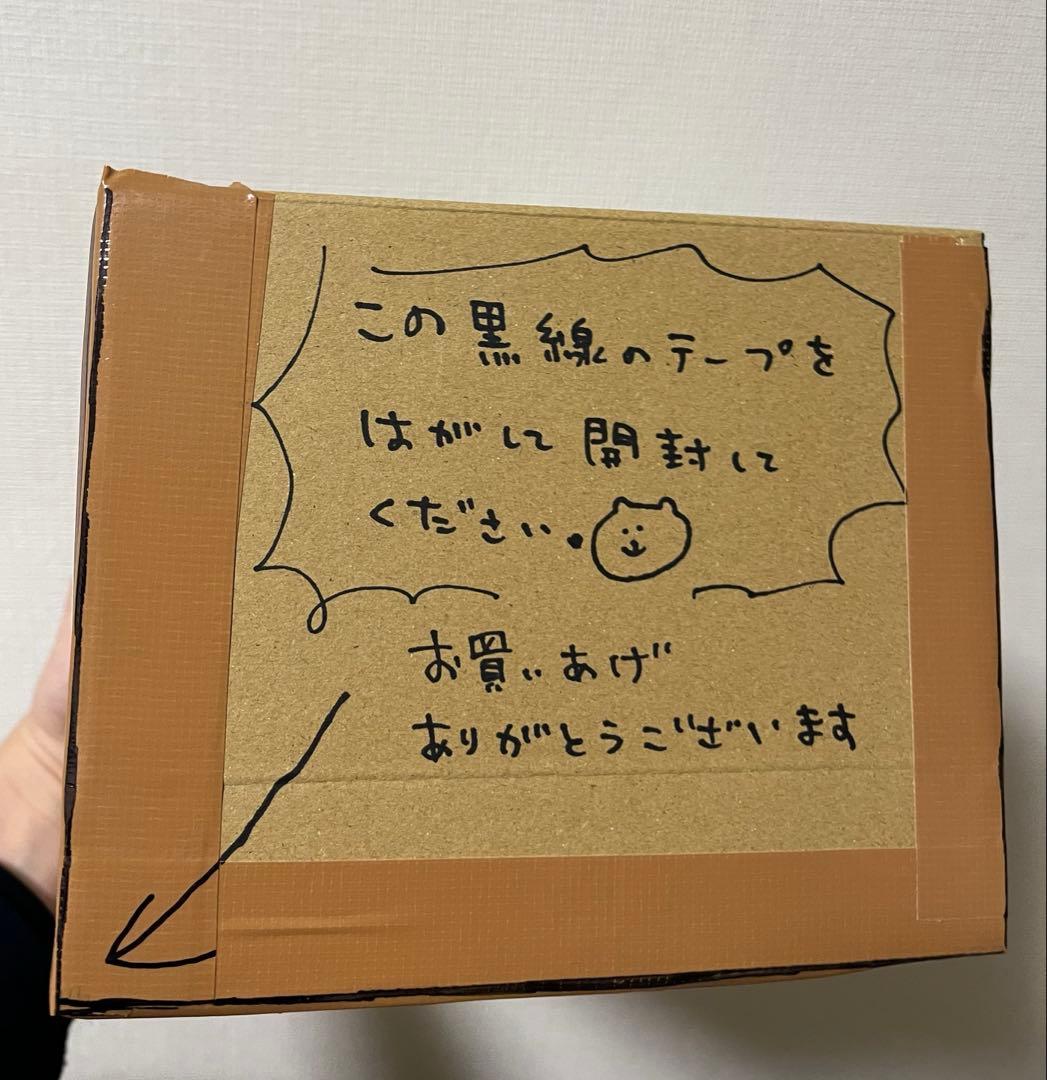 この黒線のテープを
はがして開封して
ください。
お買いあげ
ありがとうございます